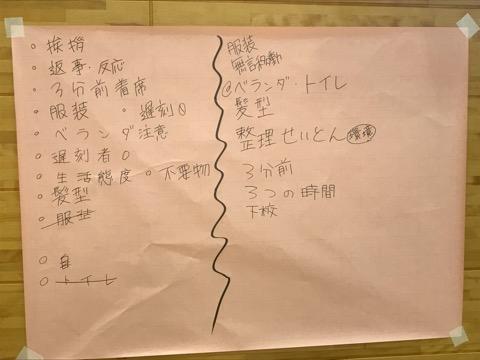 ○ 挨拶
○ 返事・反応
○ 3分前着席
○ 服装 ・遅刻0
○ ベランダ注意
○ 遅刻者0
○ 生活態度 ○ 不要物
○ 髪型
○ 服装
○
○ トイレ
服装
無言移動
@ベランダ・トイレ
髪型
整理せいとん 環境
3分前
3つの時間
下校